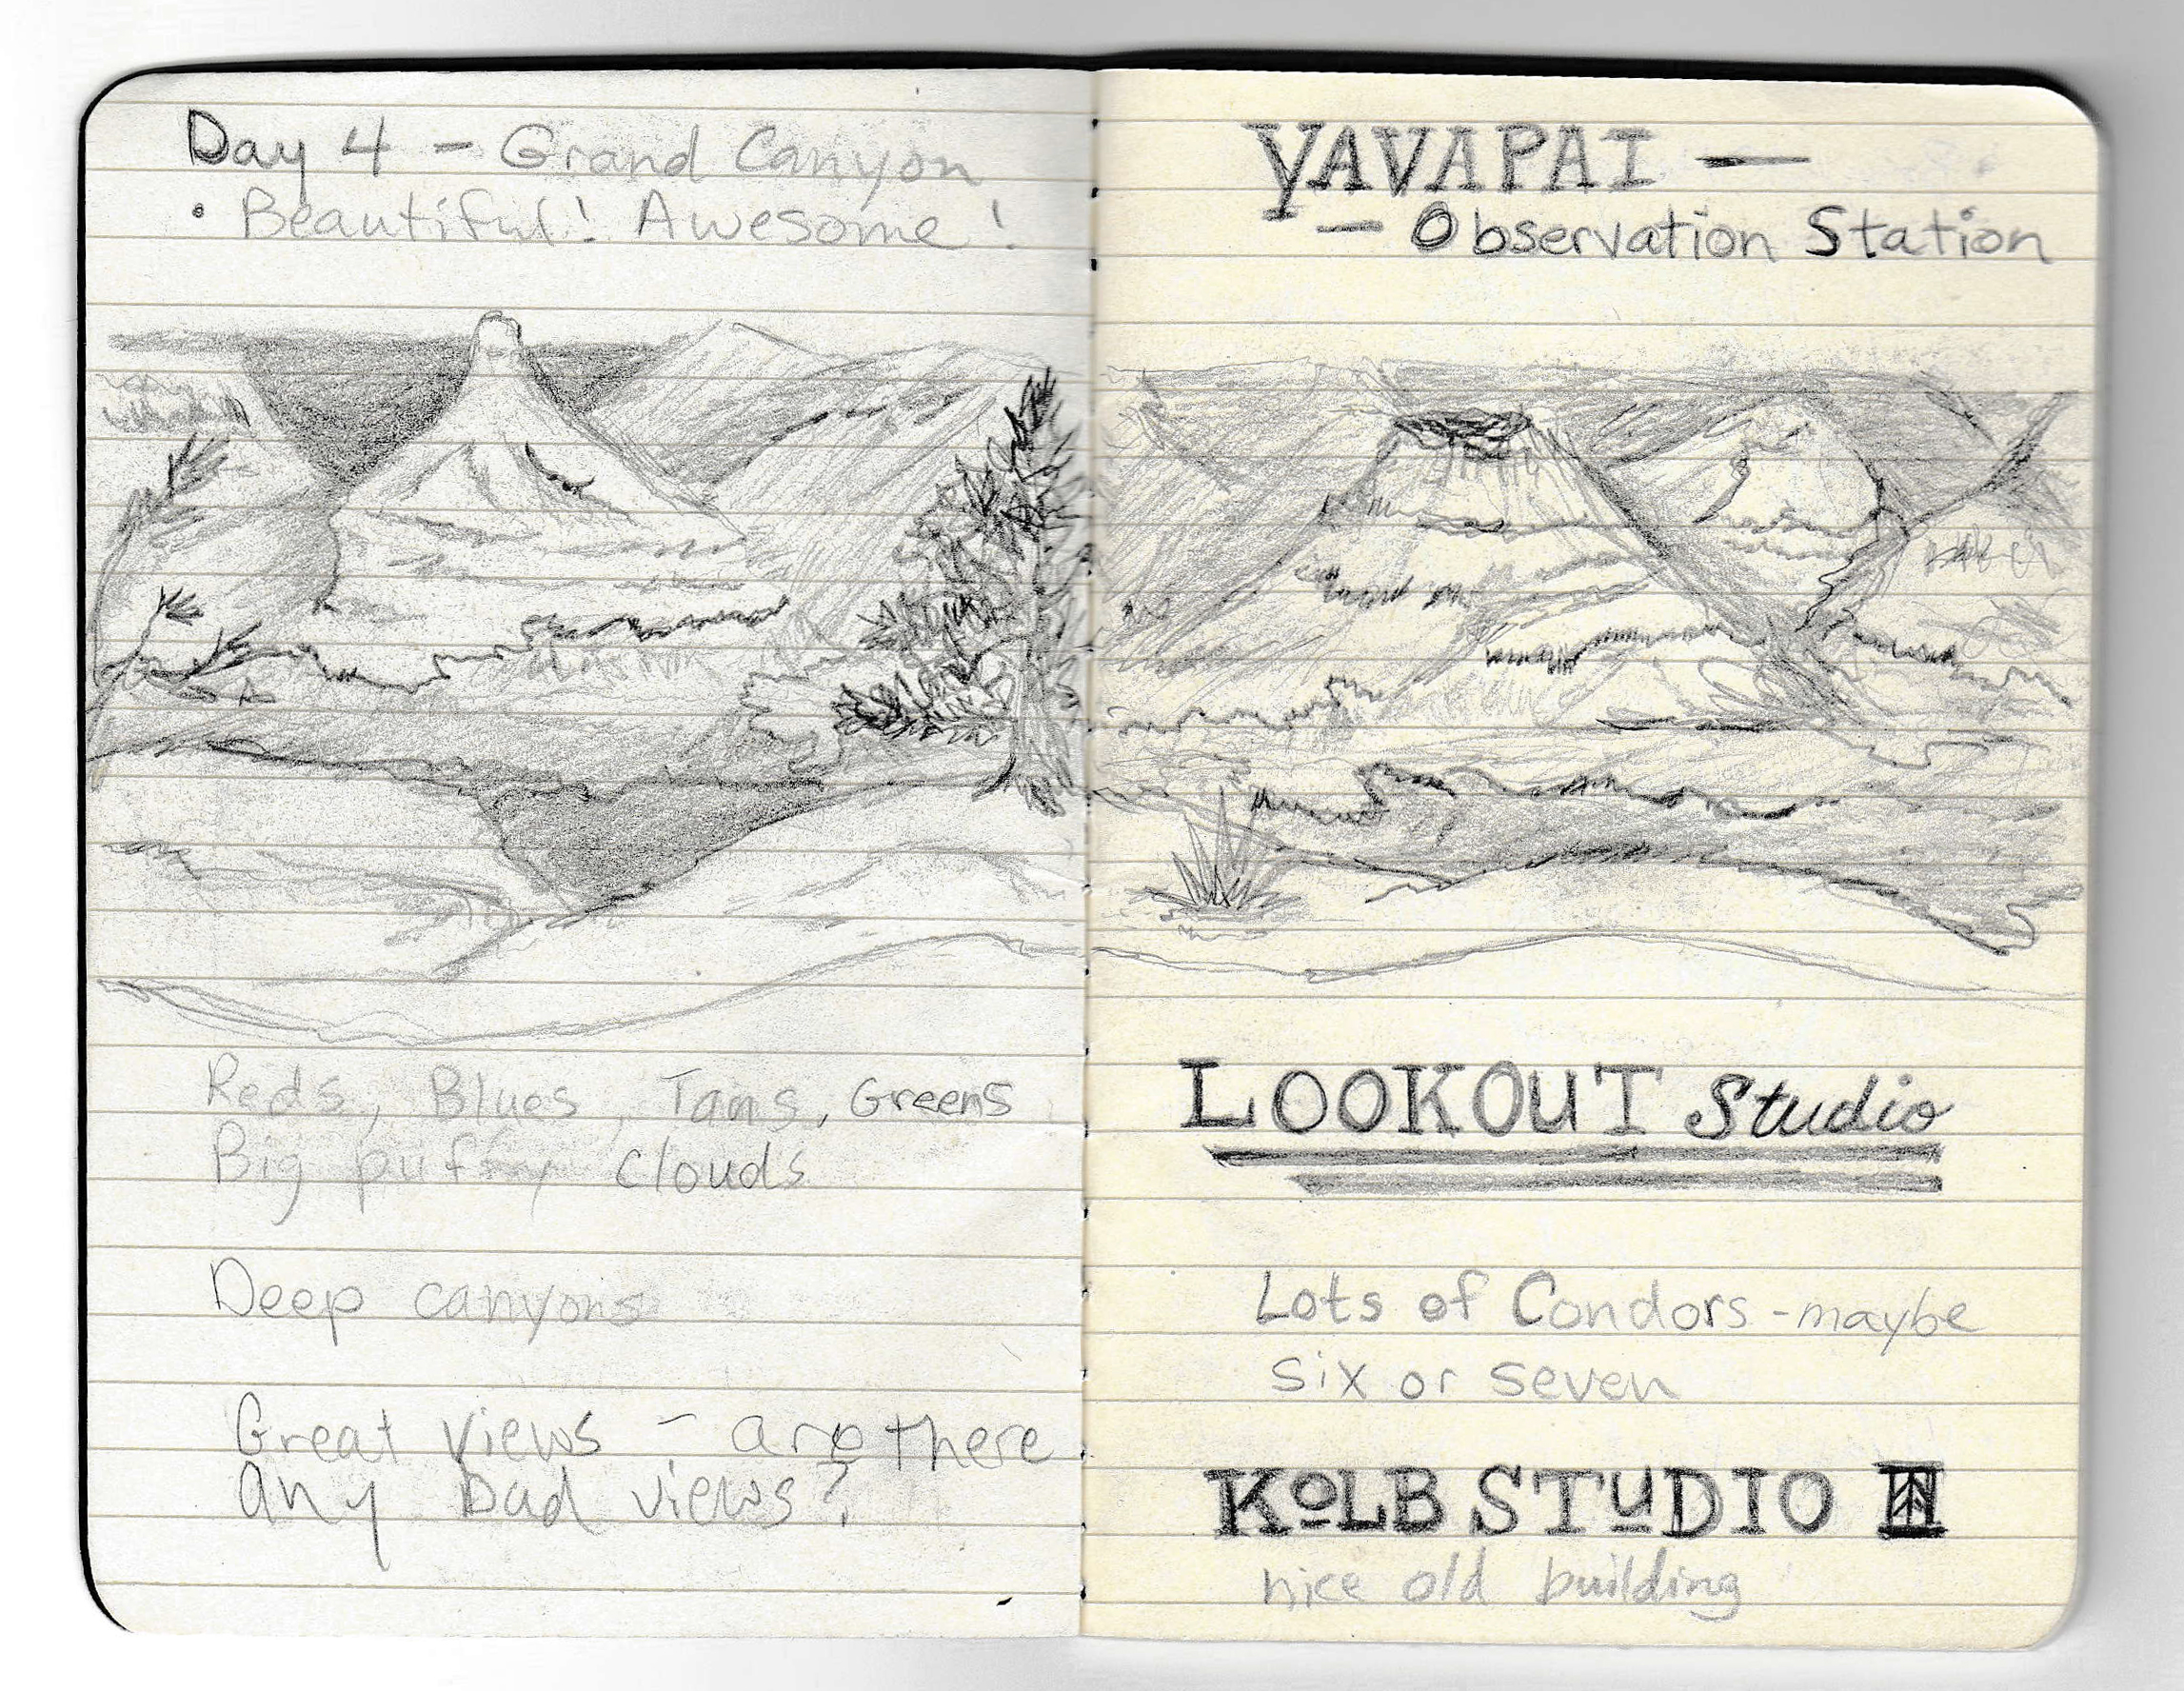 Day 4 - Grand Canyon
• Beautiful! Awesome!
Reds, Blues, Tans, Greens
Big puffy clouds
Deep canyons
Great views - are there
any bad views?
YAVAPAI —
— Observation Station
LOOKOUT Studio
Lots of Condors - maybe
six or seven
KOLB STUDIO
nice old building